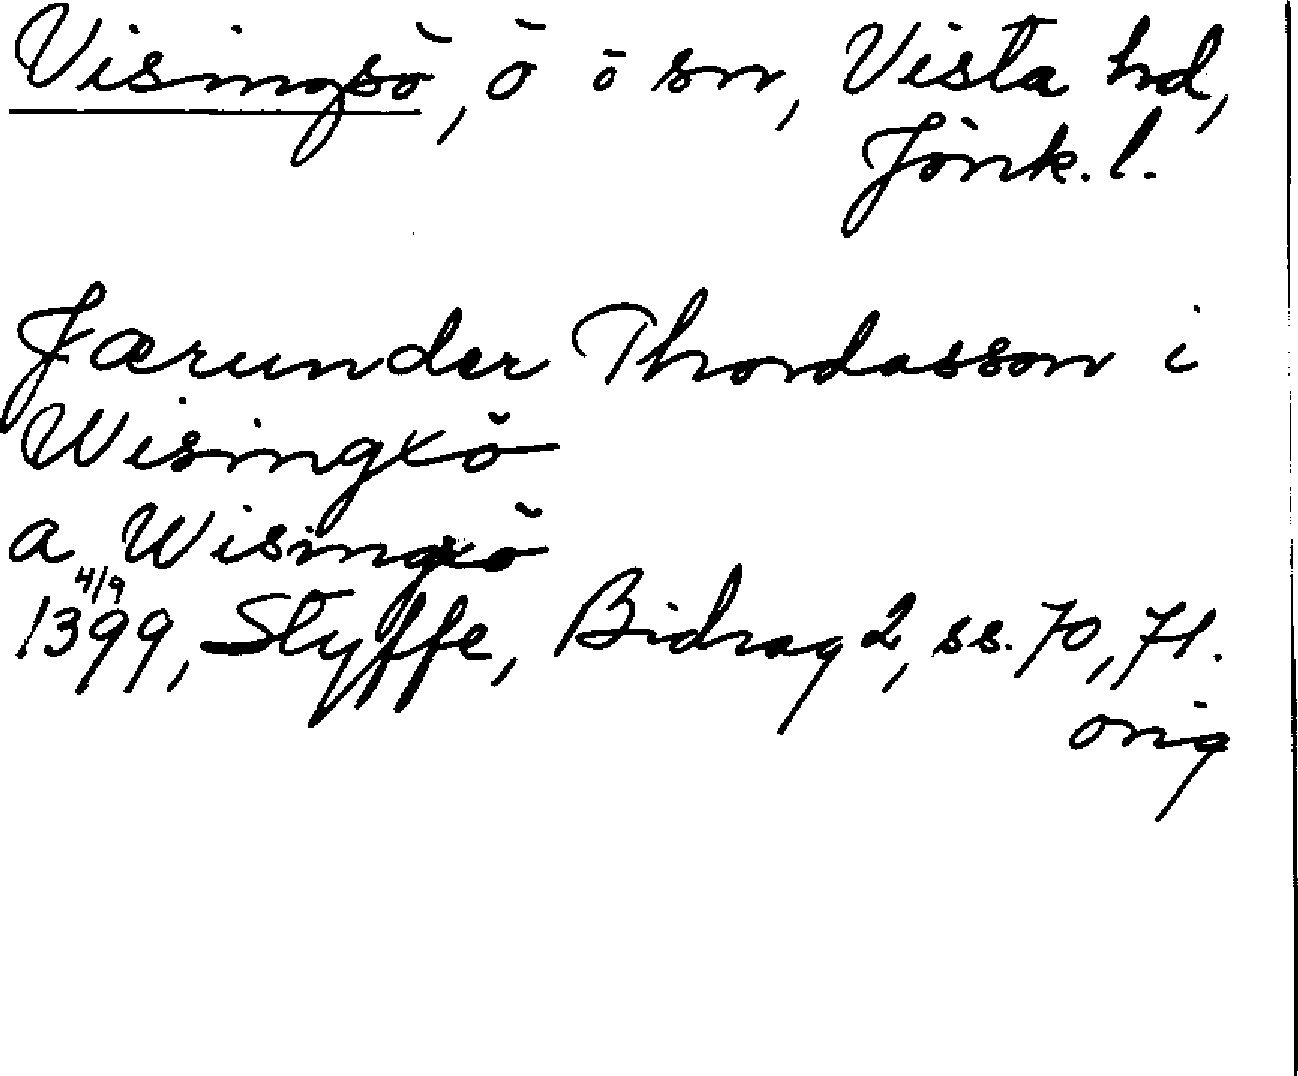 Visingsö, ö o sn, Vista hd,
Jönk. l.
Jærunder Thordasson i
Wisingxö
a Wisingxö
4/9
1399, Styffe, Bidrag 2, ss. 70, 71.
orig